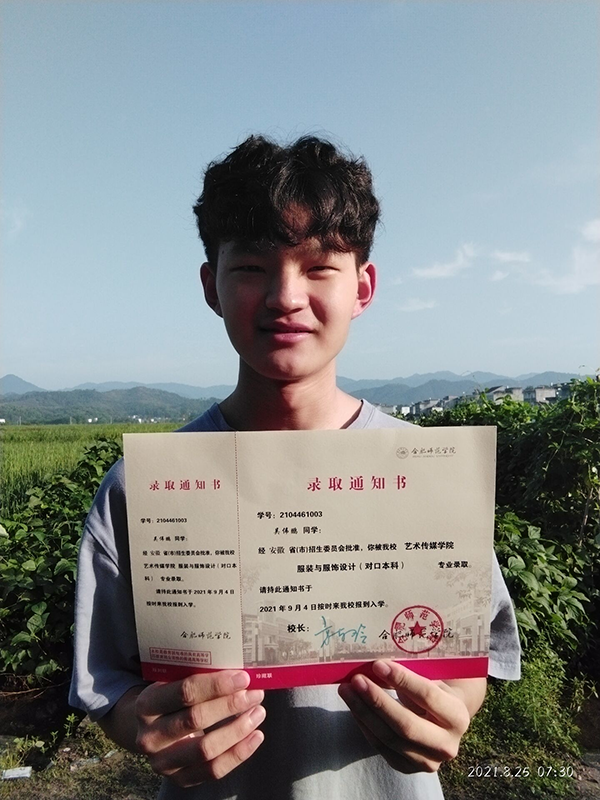 录取通知书
学号：2104461003
吴伟鹏 同学：
经 安徽 省(市)招生委员会批准，你被我校
艺术传媒学院 服装与服饰设计（对口本
科） 专业录取。
请持此通知书于 2021 年 9 月 4 日
按时来我校报到入学。
合肥师范学院
合肥师范学院
录取通知书
学号：2104461003
吴伟鹏 同学：
经 安徽 省(市)招生委员会批准，你被我校 艺术传媒学院
服装与服饰设计（对口本科） 专业录取。
请持此通知书于
2021 年 9 月 4 日按时来我校报到入学。
校长：
合肥师范学院
2021.8.26 07:30